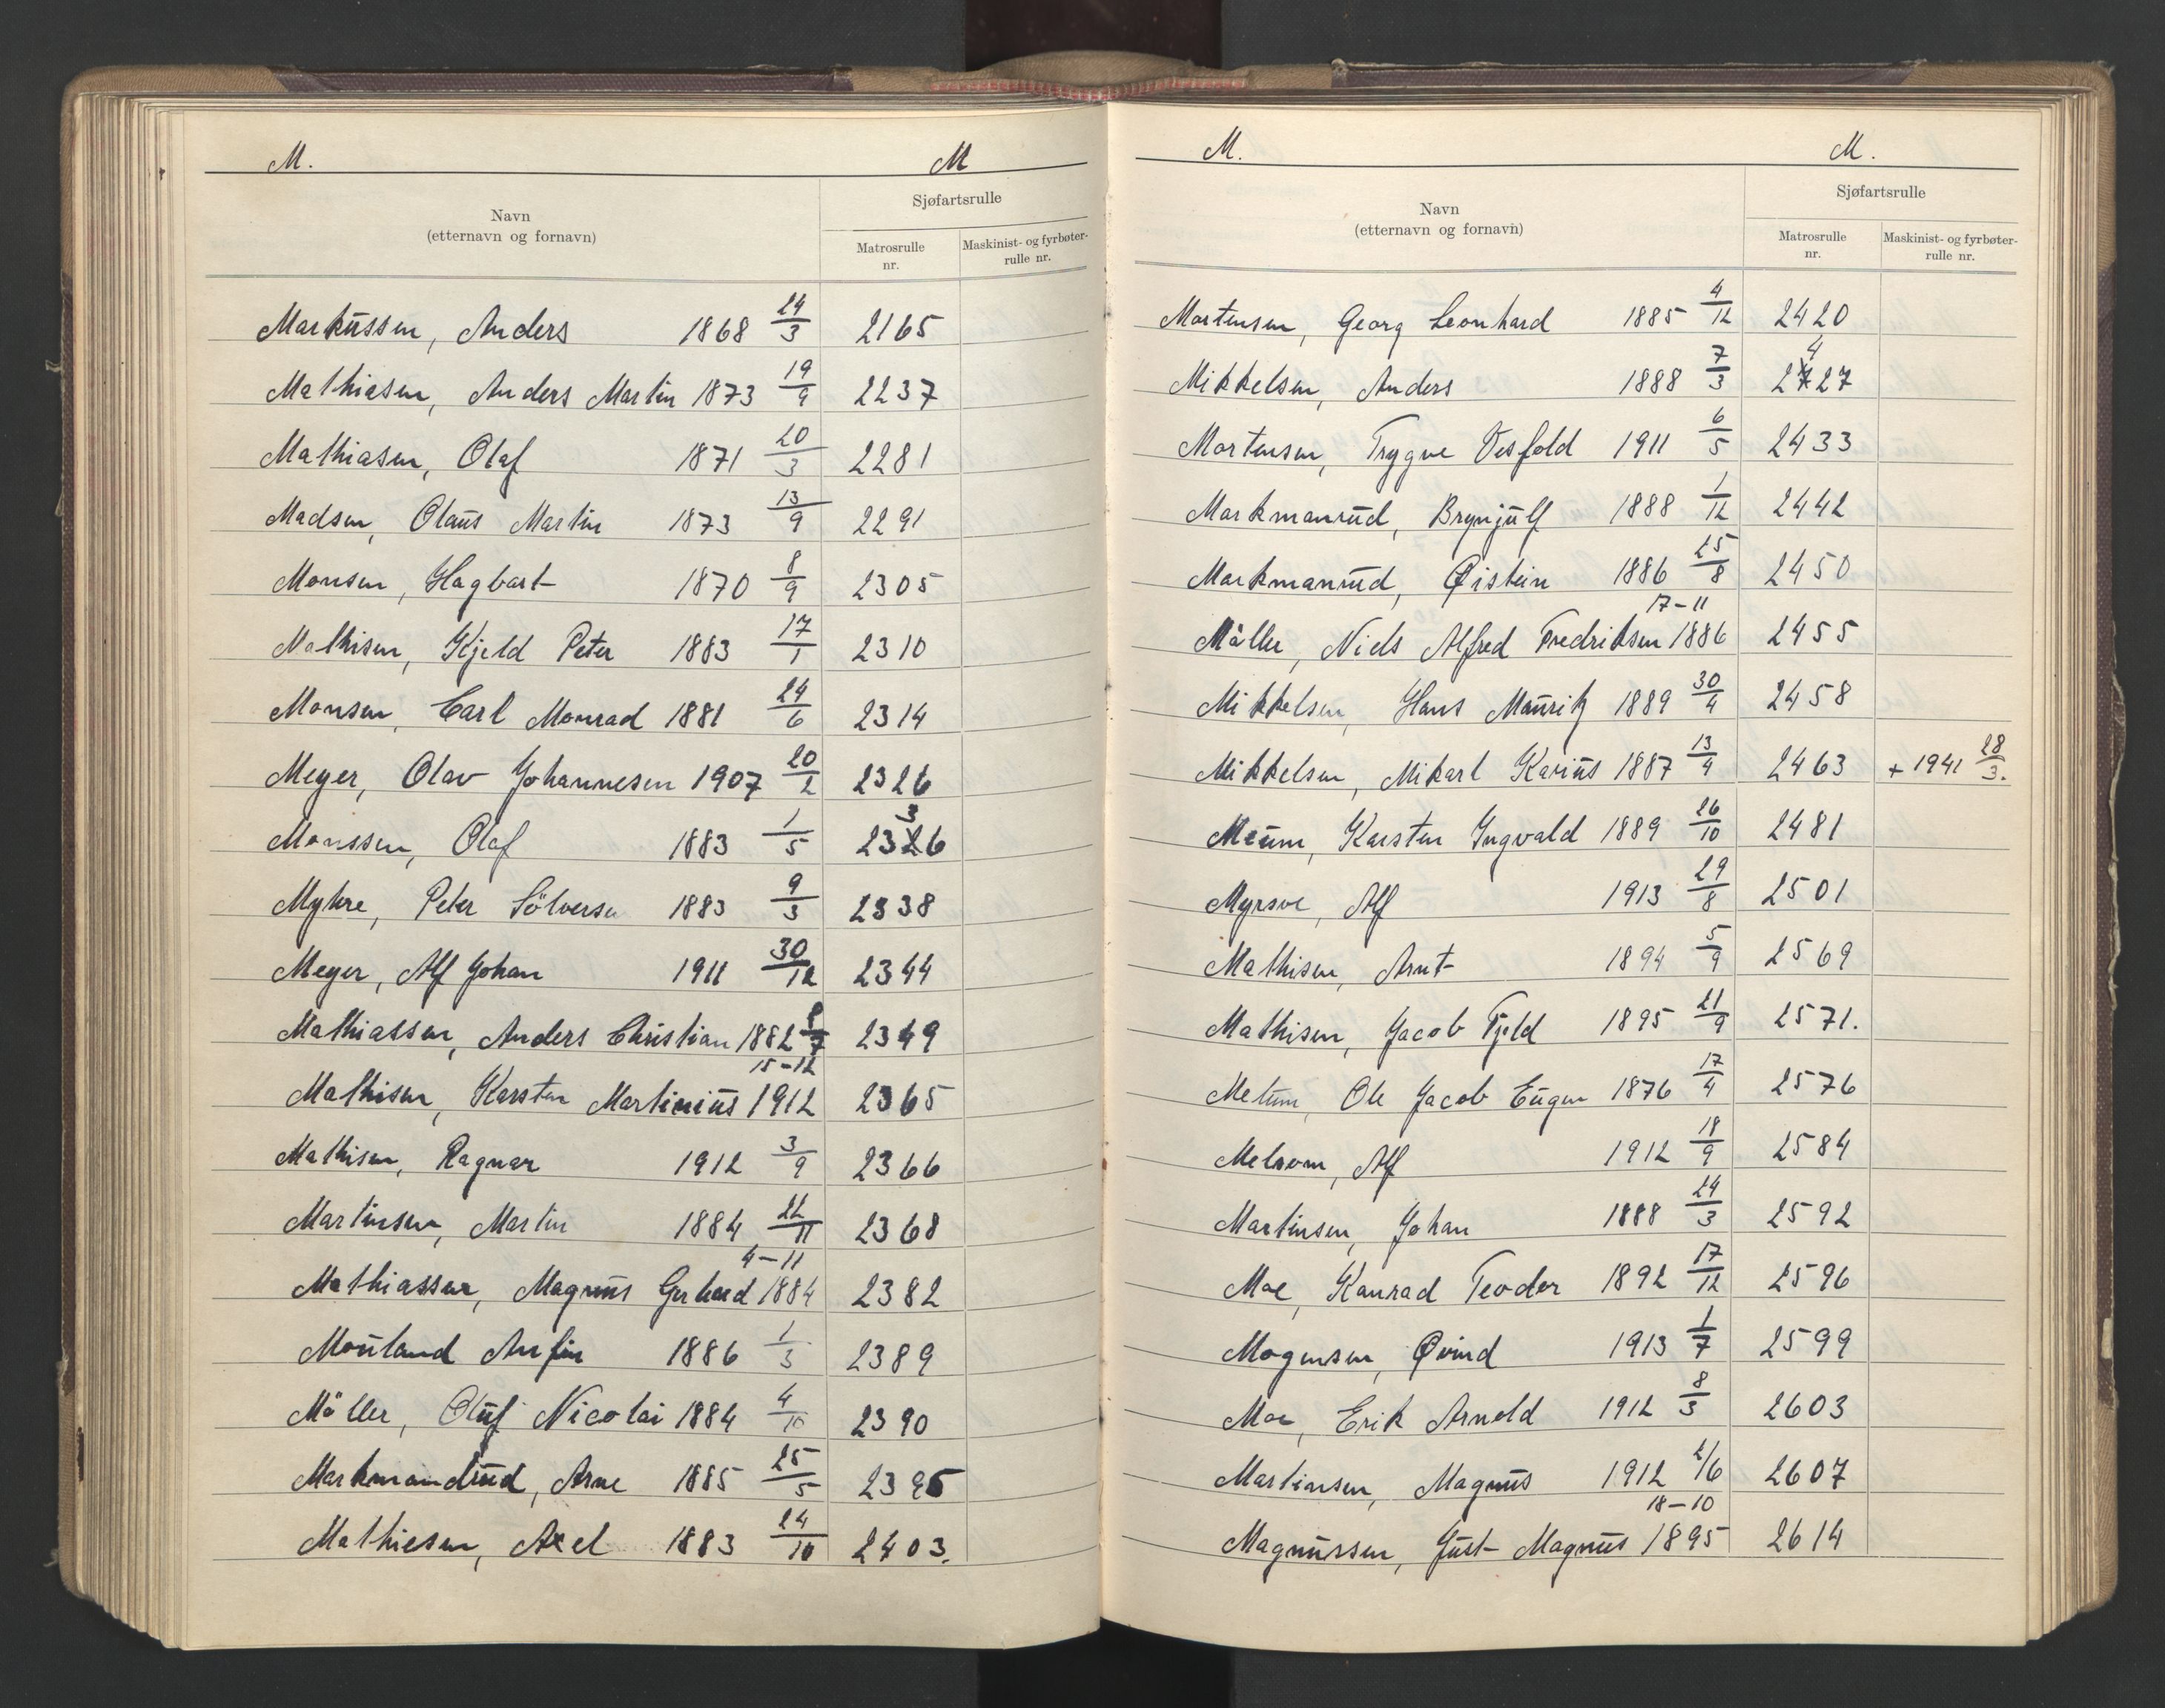 M. M
Navn
(etternavn og fornavn)
Sjøfartsrulle
Matrosrulle
nr.
Maskinist- og fyrbøter-
rulle nr.
Markussen, Anders 1868 24/3 2165
Mathiasen, Anders Martin 1873 19/9 2237
Mathiasen, Olaf 1871 20/3 2281
Madsen, Olaus Martin 1873 13/9 2291
Monsen, Hagbart 1870 8/9 2305
Mathisen, Kjeld Peter 1883 17/1 2310
Monsen, Carl Monrad 1881 24/6 2314
Meyer, Olav Johannesen 1907 20/2 2326
Monssen, Olaf 1883 1/5 2336
Myhre, Peter Sölversen 1883 9/3 2338
Meyer, Alf Johan 1911 30/12 2344
Mathiassen, Anders Christian 1882 8/7 2349
Mathisen, Karsten Martinius 15-12 1912 2365
Mathisen, Ragnar 1912 3/9 2366
Martinsen, Martin 1884 22/11 2368
Mathiassen, Magnus Gerhard 4-11 1884 2382
Mouland Anfin 1886 1/3 2389
Möller, Oluf Nicolai 1884 4/10 2390
Markmandrud, Arne 1885 25/5 2395
Mathiesen, Axel 1883 24/10 2403.
M. M.
Navn
(etternavn og fornavn)
Sjøfartsrulle
Matrosrulle
nr.
Maskinist- og fyrbøter-
rulle nr.
Mortensen, Georg Leonhard 1885 4/12 2420
Mikkelsen, Anders 1888 7/3 2427
Mortensen, Trygve Vesfold 1911 6/5 2433
Markmanrud, Brynjulf 1888 1/12 2442
Markmanrud, Øistein 1886 25/8 2450
Möller, Niels Alfred Fredriksen 17-11 1886 2455
Mikkelsen, Hans Mauritz 1889 30/4 2458
Mikkelsen, Mikarl Karius 1887 13/9 2463 + 1941 28/3.
Meum, Karsten Ingvald 1889 26/10 2481
Myrsve, Alf 1913 29/8 2501
Mathisen, Arnt 1894 5/9 2569
Mathisen, Jacob Fjeld 1895 21/9 2571.
Metum, Ole Jacob Eugen 1876 17/4 2576
Melsom, Alf 1912 18/9 2584
Martinsen, Johan 1888 24/3 2592
Moe, Konrad Teodor 1892 17/12 2596
Mogensen, Øvind 1913 1/7 2599
Moe, Erik Arnold 1912 8/3 2603
Martinsen, Magnus 1912 2/6 2607
Magnussen, Just Magnus 18-10 1895 2614